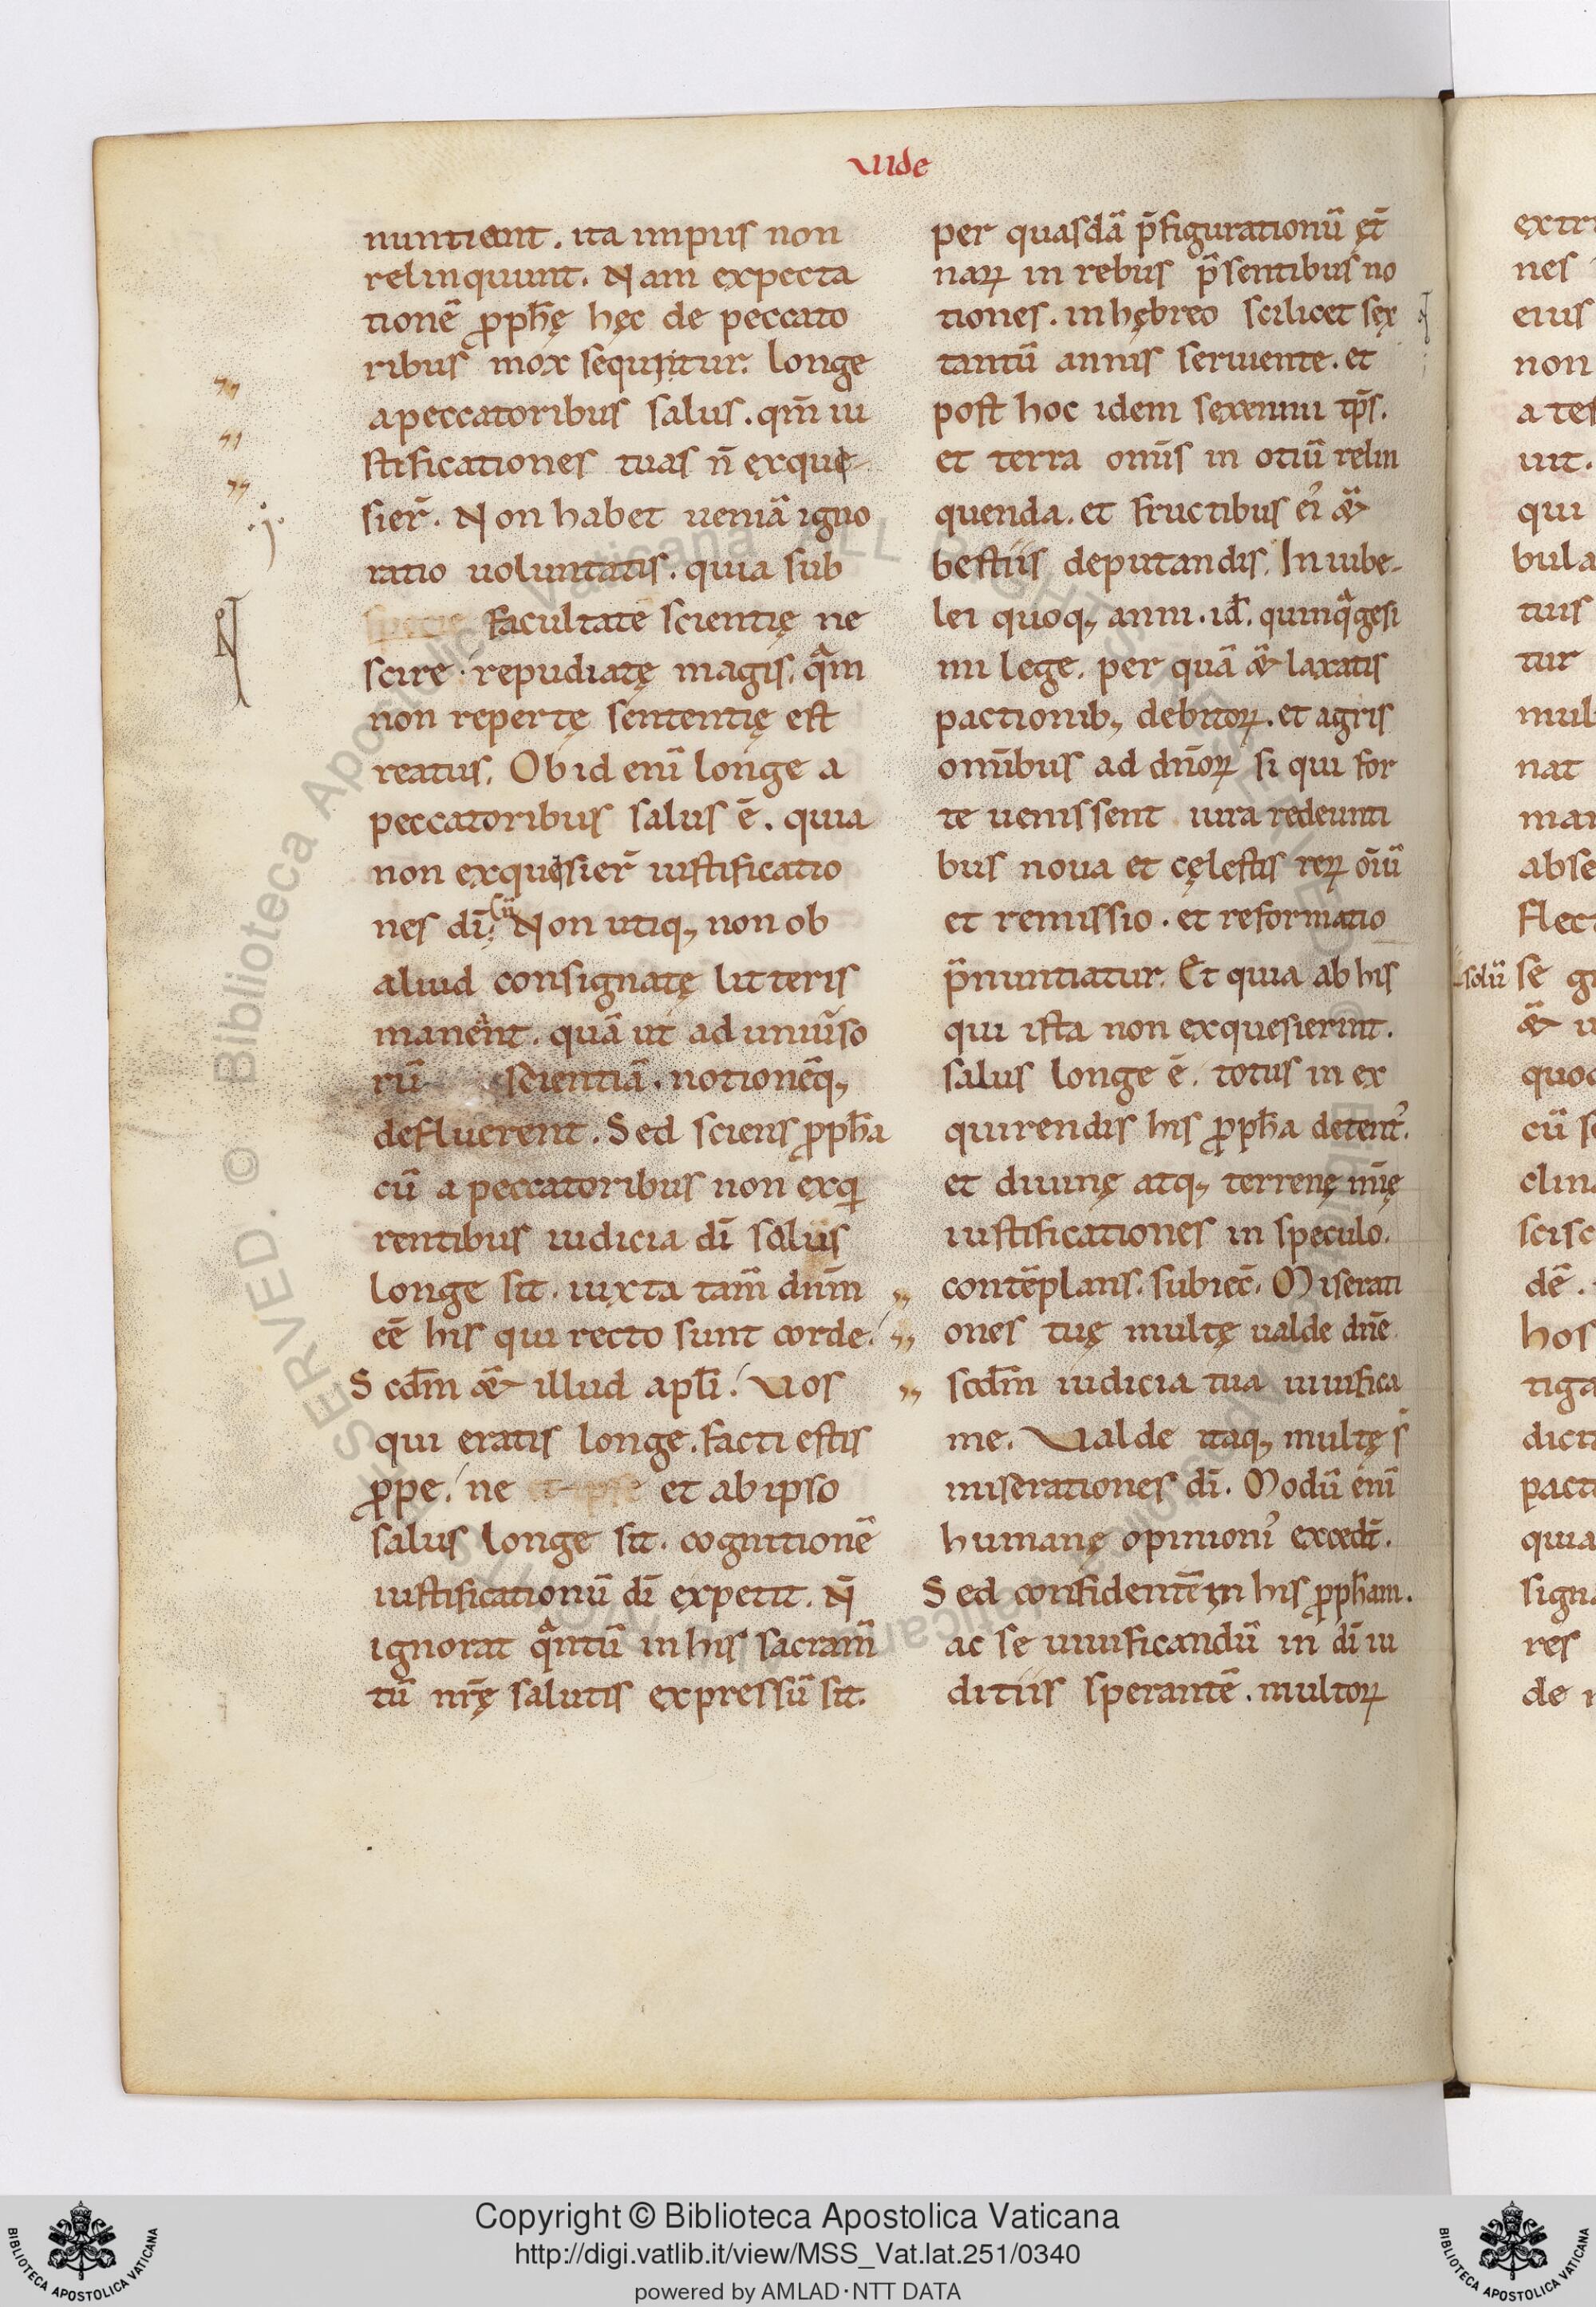 Uıde
nuntient . ita impiis non
relinquunt . Nam expecta
tionē ꝓph̄ę hęc de peccato
ribus mox sequitur . longe
a peccatoribus salus . qm̄ iu
stificationes tuas n̄ exque
sier̄ . Non habet ueniā igno
ratio uoluntatis . quia sub
facultate scientię ne
scire . repudiatę magis . qᵃm
non repertę sententię est
reatus . Ob id enī longe a
peccatoribus salus ē . quia
non exquesier̄ iustificatio
nes dī . Non utiq, non ob
aliud consignatę litteris
manent . quā ut ad uniūso
rū scientiā . notionēq,
defluerent . Sed sciens ꝓph̄a
cū a peccatoribus non exqi
rentibus iudicia dī salus
longe sit . iuxta tam̄ dnm̄
eē his qui recto sunt corde .
Scdm̄ & illud apl̄i . Uos
qui eratis longe . facti estis
ꝓpe . ne et ab ipso
salus longe sit . cognitionē
iustificationū dī expetit . N̄
ignorat qᵃntū in his sacram̄
tū nr̄ę salutis expressū sit .
per quasdā p̄figurationū ęt̄
narꝝ in rebus p̄sentibus no
tiones . in hębreo scilicet sex
tantū annis seruiente . et
post hoc idem sexennii tp̄s .
et terra om̄s in otiū relin
quenda . et fructibus ei' &
bestiis deputandis . In iube-
lei quoq, anni . id̄ . quinqᵃgesi
mi lege . per quā & laxatis
pactionib, debitorꝝ . et agris
omībus ad dn̄orꝝ si qui for
te uenissent iura redeunti
bus noua et cęlestis rerꝝ oīū
et remissio . et reformatio
p̄nuntiatur . Et quia ab his
qui ista non exquesierint .
salus longe ē . totus in ex
quirendis his ꝓph̄a detent' .
et diuinę atq, terrenę mīę
iustificationes in speculo .
contēplans . subiec̄ . Miserati
ones tuę multę ualde dn̄e .
scdm̄ iudicia tua uiuifica
me . Ualde itaq, multę s̄
miserationes dī . Modū enī
humanę opinioni' excedt̄ .
Sed confidentē in his ꝓph̄am .
ac se uiuificandū in dī iu
ditiis sperantē . multorꝝ
Copyright © Biblioteca Apostolica Vaticana
http://digi.vatlib.it/view/MSS_Vat.lat.251/0340
powered by AMLAD·NTT DATA